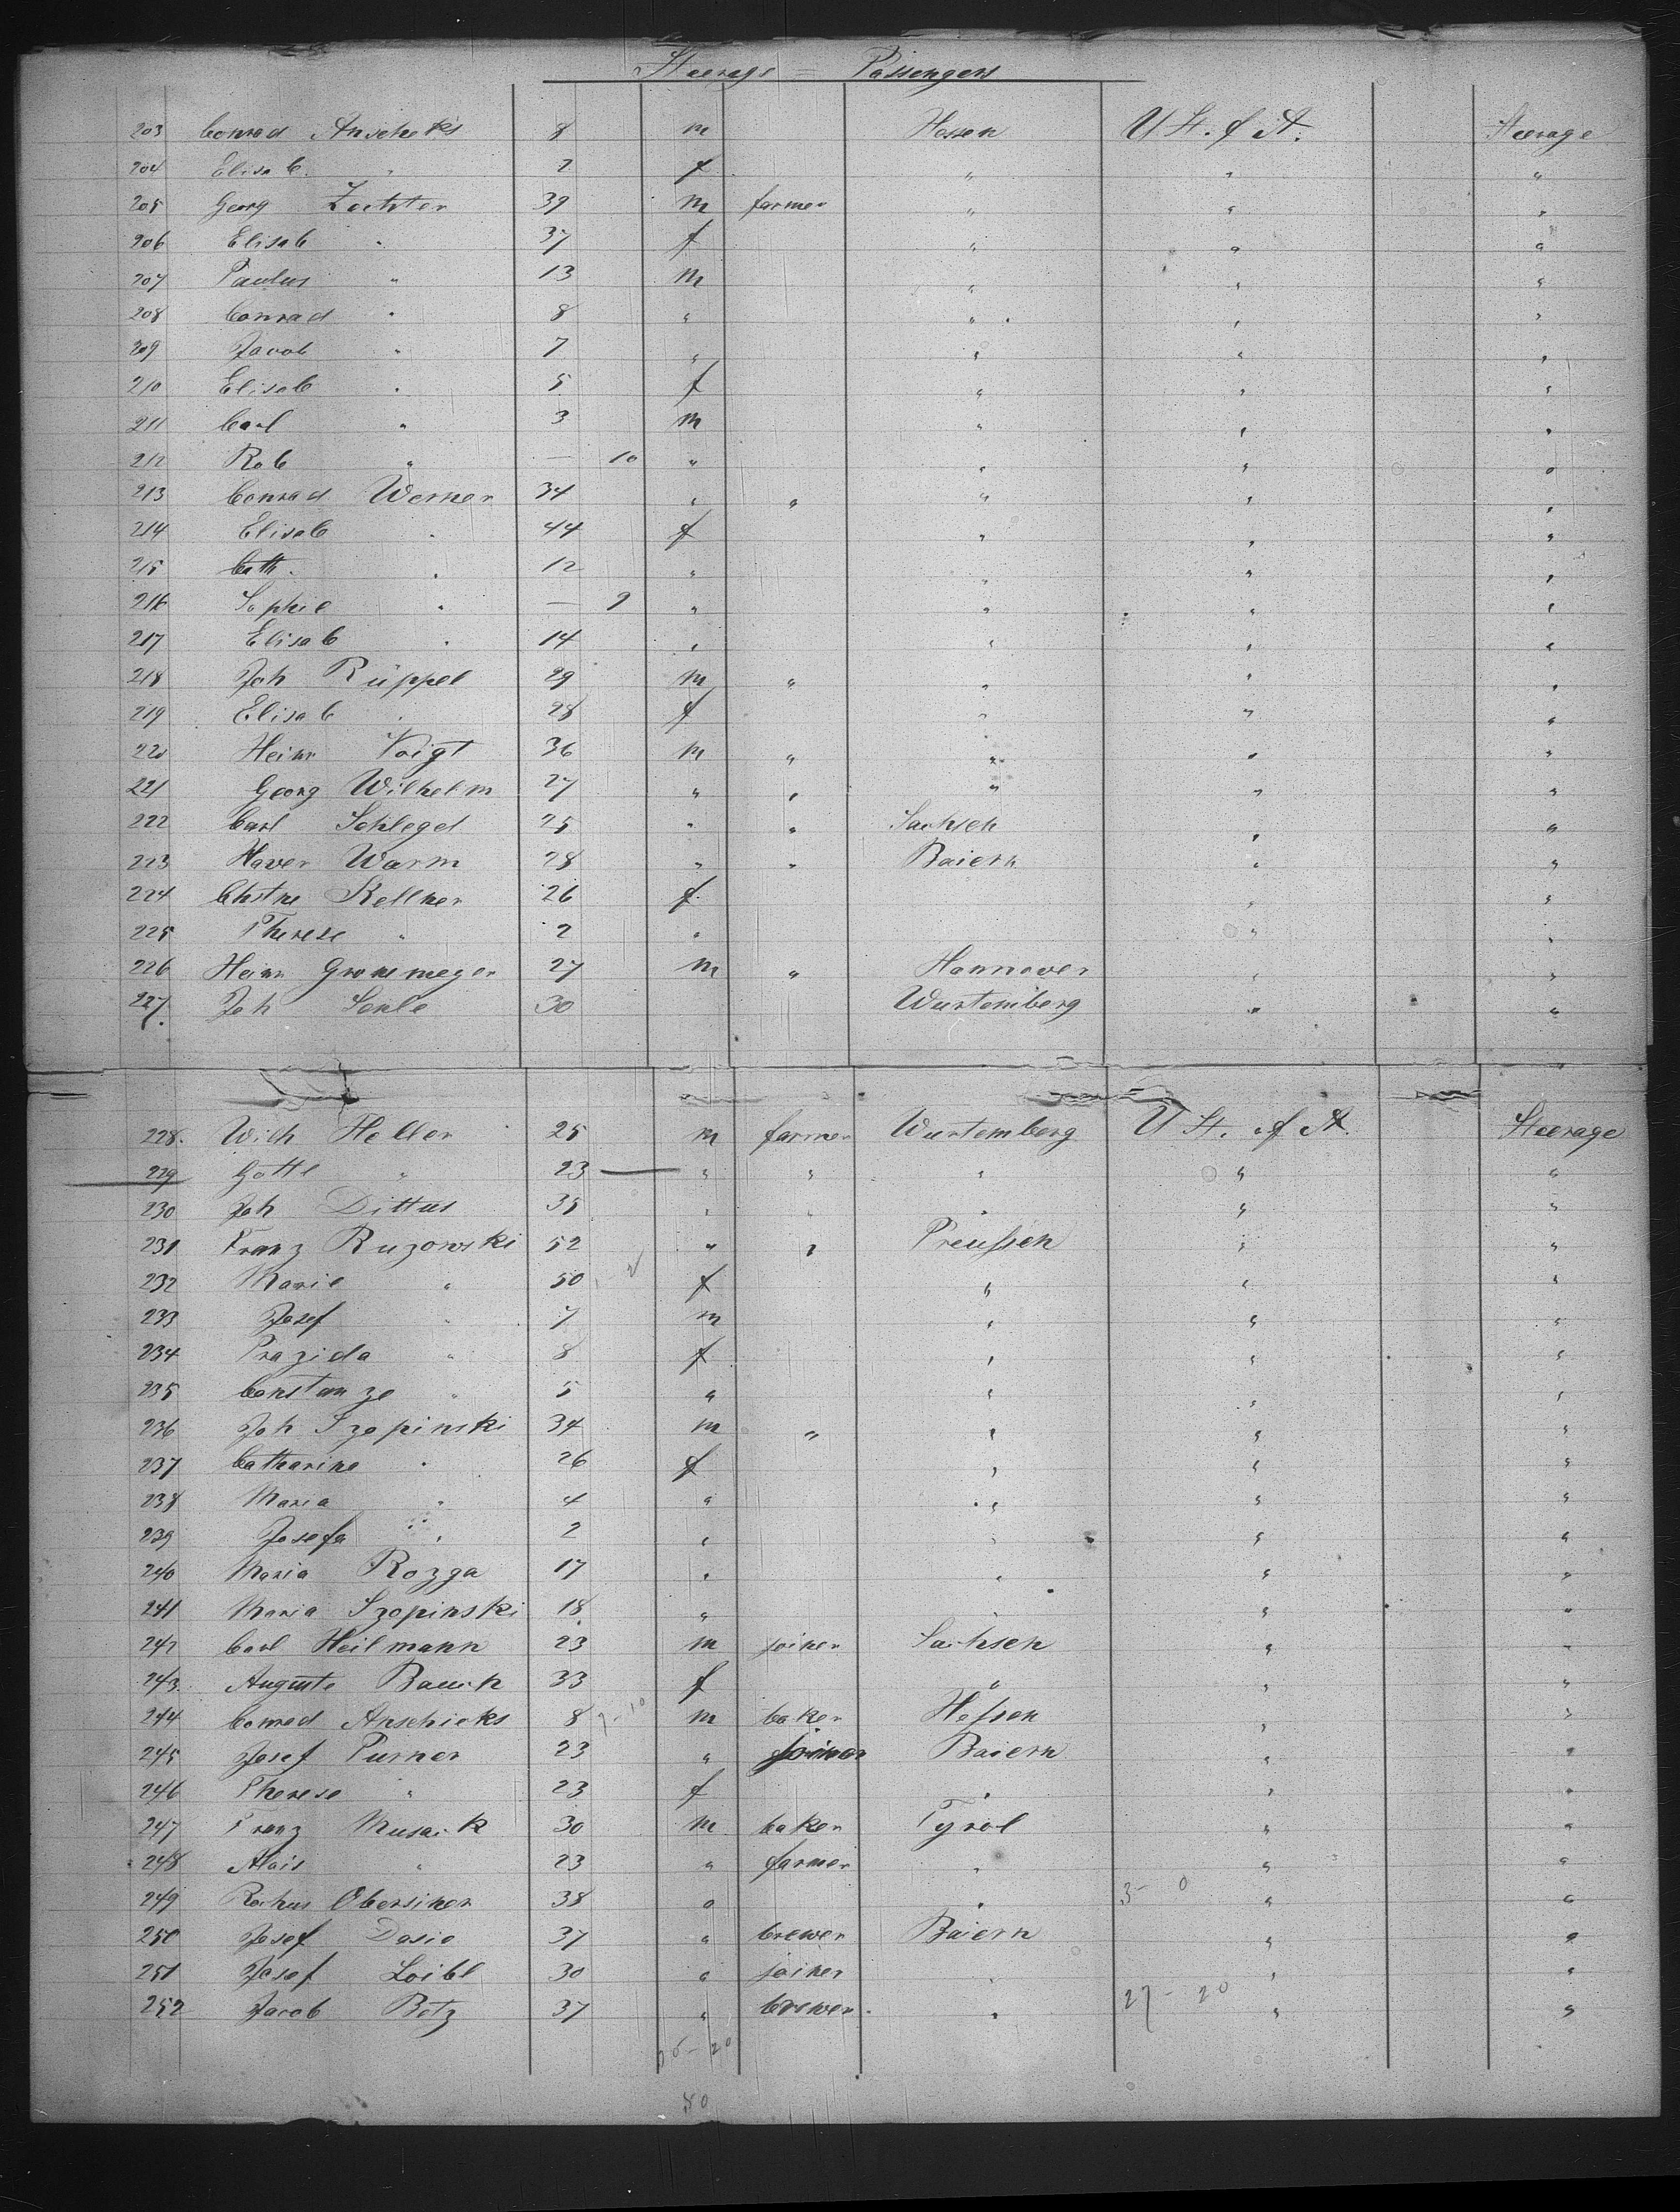 Steerage = Passengers
203 Conrad Anschicks 8 m Hessen U St. of A. Steerage
204 Elisab. " 2 f " " "
205 Georg Zechter 39 m farmer " " "
206 Elisab " 37 f " " "
207 Paulus " 13 m " " "
208 Conrad " 8 " " " "
209 Jacob " 7 " " " "
210 Elisab " 5 f " " "
211 Carl " 3 m " " "
212 Rob " — 10 " " " "
213 Conrad Werner 34 " " " " "
214 Elisab " 44 f " " "
215 Cath. " 12 " " " "
216 Sophie " — 9 " " " "
217 Elisab " 14 " " " "
218 Joh Rüppel 29 m " " " "
219 Elisab " 28 f " " "
220 Heinr Voigt 36 m " " " "
221 Georg Wilhelm 27 " " " " "
222 Carl Schlegel 25 " " Sachsen " "
223 Xaver Warm 28 " " Baiern " "
224 Chstne Kellner 26 f " "
225 Therese " 2 " " "
226 Heinr Gronemeyer 27 m " Hannover " "
227. Joh Senle 30 Wurtemberg " "
228. Wilh Heller 25 m farmer Wurtemberg U St. of A. Steerage
229 Gottl " 23 " " " " "
230 Joh Dittus 35 " " " " "
231 Franz Ruzowski 52 " " Preussen " "
232 Marie " 50 f " " "
233 Josef " 7 m " " "
234 Prazida " 8 f " " "
235 Constanze " 5 " " " "
236 Joh Szopinski 34 m " " " "
237 Catharine " 26 f " " "
238 Maria " 4 " " " "
239 Josefa " 2 " " " "
240 Maria Rozga 17 " " " "
241 Maria Szopinski 18 " " " "
242 Carl Heilmann 23 m joiner Sachsen " "
243. Auguste Bauch 33 f " " "
244 Conrad Anschicks 8 m baker Hessen " "
245 Josef Purner 23 " joiner Baiern " "
246 Therese " 23 f " " "
247 Franz Musack 30 m baker Tyrol " "
248 Alois " 23 " farmer " " "
249 Rochus Obersiner 38 " " 3 - 0 " "
250 Josef Dasio 37 " brewer Baiern " "
251 Josef Loibl 30 " joiner " " "
252 Jacob Betz 37 " brewer " 27 - 20 " "
20
80